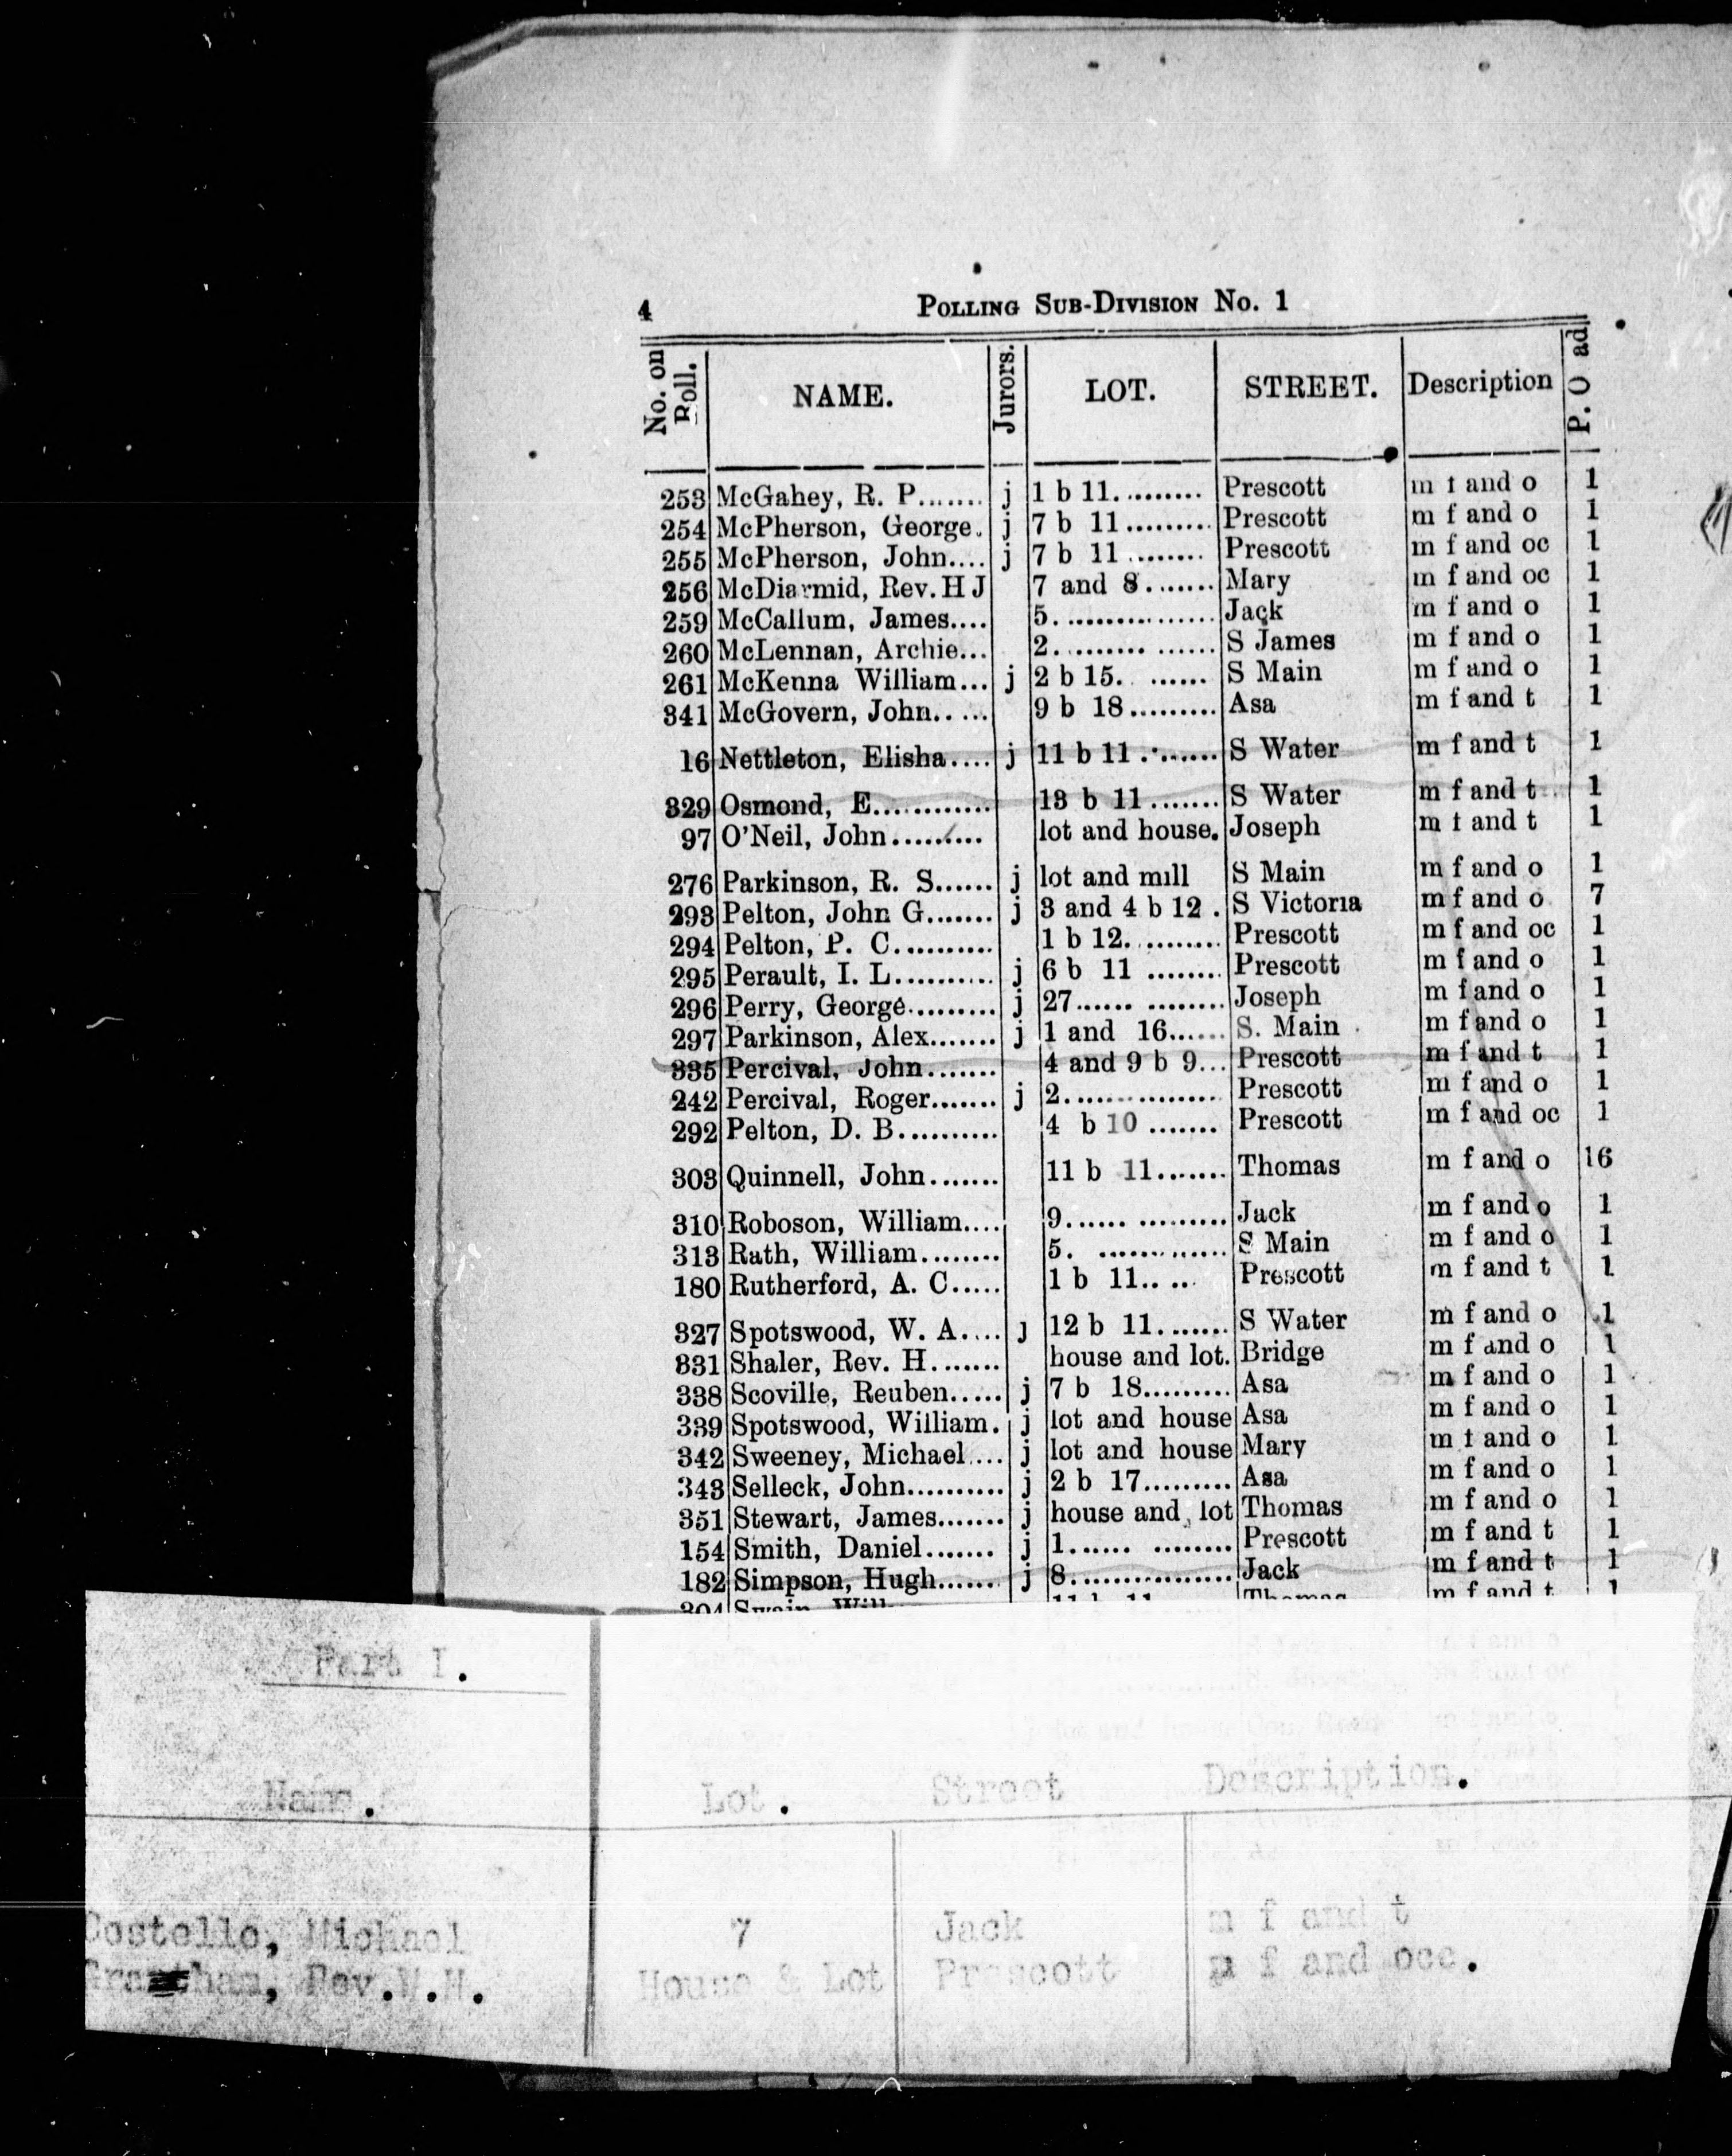 4 POLLING SUB-DIVISION No. 1
No. on Roll. NAME. Jurors. LOT. STREET. Description P. O ad
253 McGahey, R. P....... j 1 b 11.......... Prescott m f and o 1
254 McPherson, George. j 7 b 11......... Prescott m f and o 1
255 McPherson, John.... j 7 b 11........ Prescott m f and oc 1
256 McDiarmid, Rev. H J 7 and 8....... Mary m f and oc 1
259 McCallum, James.... 5................ Jack m f and o 1
260 McLennan, Archie... 2......... ...... S James m f and o 1
261 McKenna William... j 2 b 15. ...... S Main m f and o 1
341 McGovern, John..... 9 b 18......... Asa m f and t 1
16 Nettleton, Elisha.... j 11 b 11........ S Water m f and t 1
329 Osmond, E............ 13 b 11....... S Water m f and t 1
97 O'Neil, John......... lot and house. Joseph m f and t 1
276 Parkinson, R. S...... j lot and mill S Main m f and o 1
293 Pelton, John G....... j 3 and 4 b 12. S Victoria m f and o 7
294 Pelton, P. C.......... 1 b 12.......... Prescott m f and oc 1
295 Perault, I. L.......... j 6 b 11 ....... Prescott m f and o 1
296 Perry, George......... j 27...... ........ Joseph m f and o 1
297 Parkinson, Alex....... j 1 and 16...... S. Main m f and o 1
335 Percival, John....... 4 and 9 b 9... Prescott m f and t 1
242 Percival, Roger....... j 2................ Prescott m f and o 1
292 Pelton, D. B.......... 4 b 10 ....... Prescott m f and oc 1
303 Quinnell, John....... 11 b 11....... Thomas m f and o 16
310 Roboson, William.... 9...... ......... Jack m f and o 1
313 Rath, William........ 5. ............ S Main m f and o 1
180 Rutherford, A. C..... 1 b 11.. ... Prescott m f and t 1
327 Spotswood, W. A.... j 12 b 11....... S Water m f and o 1
331 Shaler, Rev. H....... house and lot. Bridge m f and o 1
338 Scoville, Reuben..... j 7 b 18......... Asa m f and o 1
339 Spotswood, William. j lot and house Asa m f and o 1
342 Sweeney, Michael.... j lot and house Mary m f and o 1
343 Selleck, John.......... j 2 b 17......... Asa m f and o 1
351 Stewart, James....... j house and lot Thomas m f and o 1
154 Smith, Daniel....... j 1...... ........ Prescott m f and t 1
182 Simpson, Hugh....... j 8................ Jack m f and t 1
304 Swain, Will 11 b 11 Thomas m f and t 1
Part I.
Name. Lot. Street Description.
Costello, Michael 7 Jack m f and t
Rev. House & Lot Prescott m f and occ.